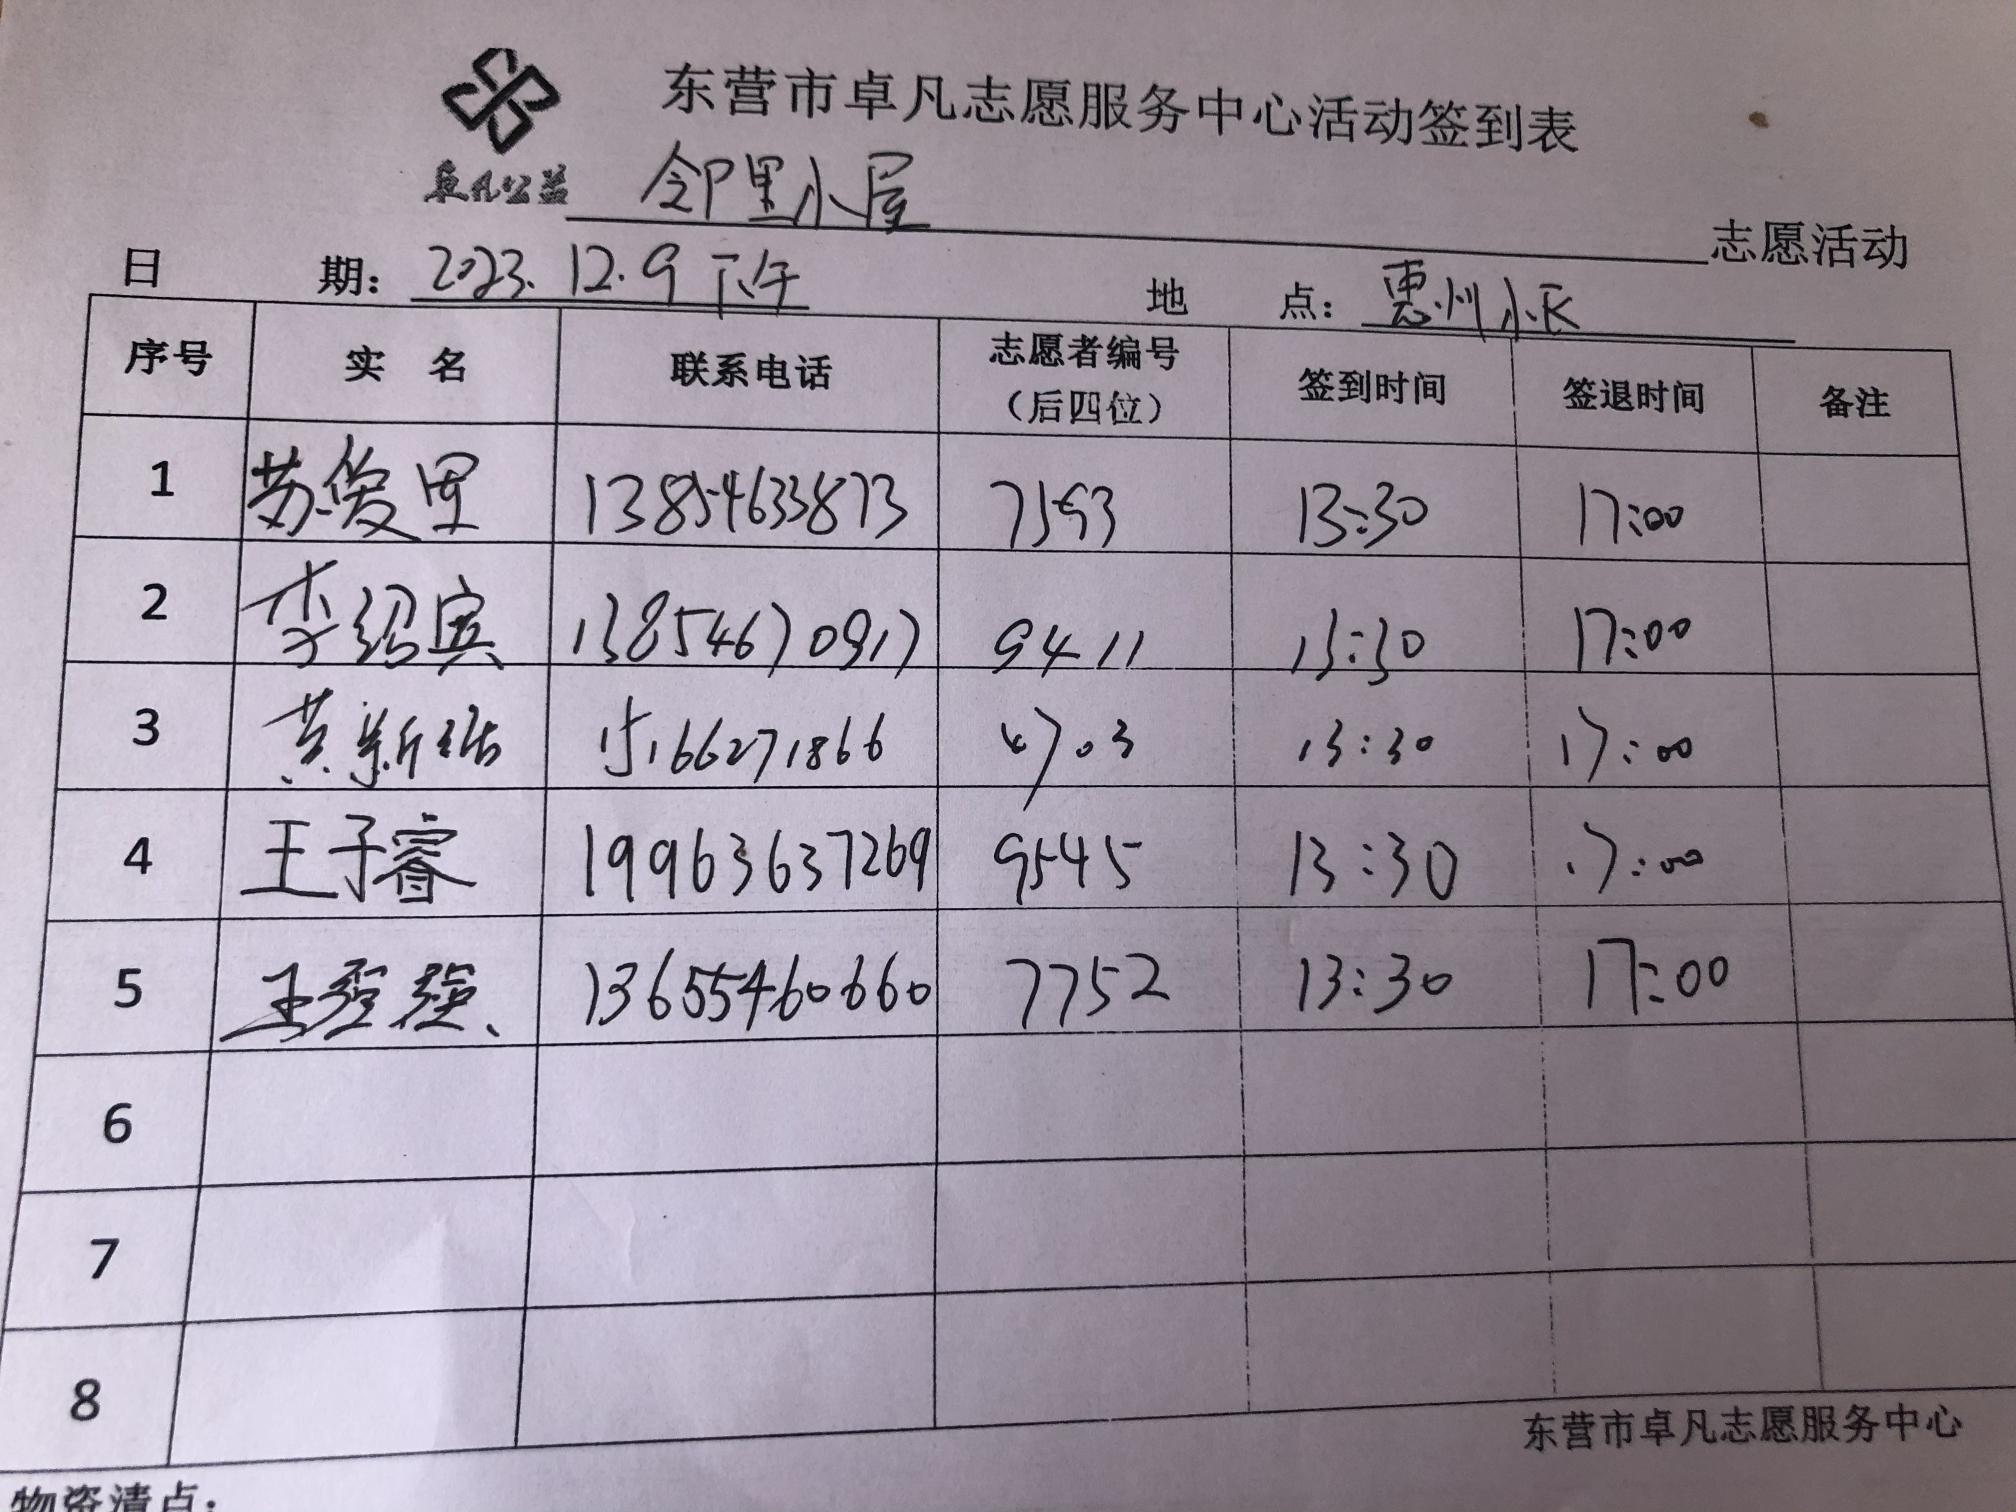 东营市卓凡志愿服务中心活动签到表
卓凡公益 邻里小屋 志愿活动
日 期: 2023.12.9 下午 地 点: 惠州小区
序号 实 名 联系电话 志愿者编号（后四位） 签到时间 签退时间 备注
1 苏俊里 13854633873 7593 13:30 17:00
2 李绍宾 13854670917 9411 13:30 17:00
3 黄新 15166271866 4703 13:30 17:00
4 王子睿 19963637269 9545 13:30 17:00
5 王 强 13655460660 7752 13:30 17:00
6
7
8
东营市卓凡志愿服务中心
物资清点: